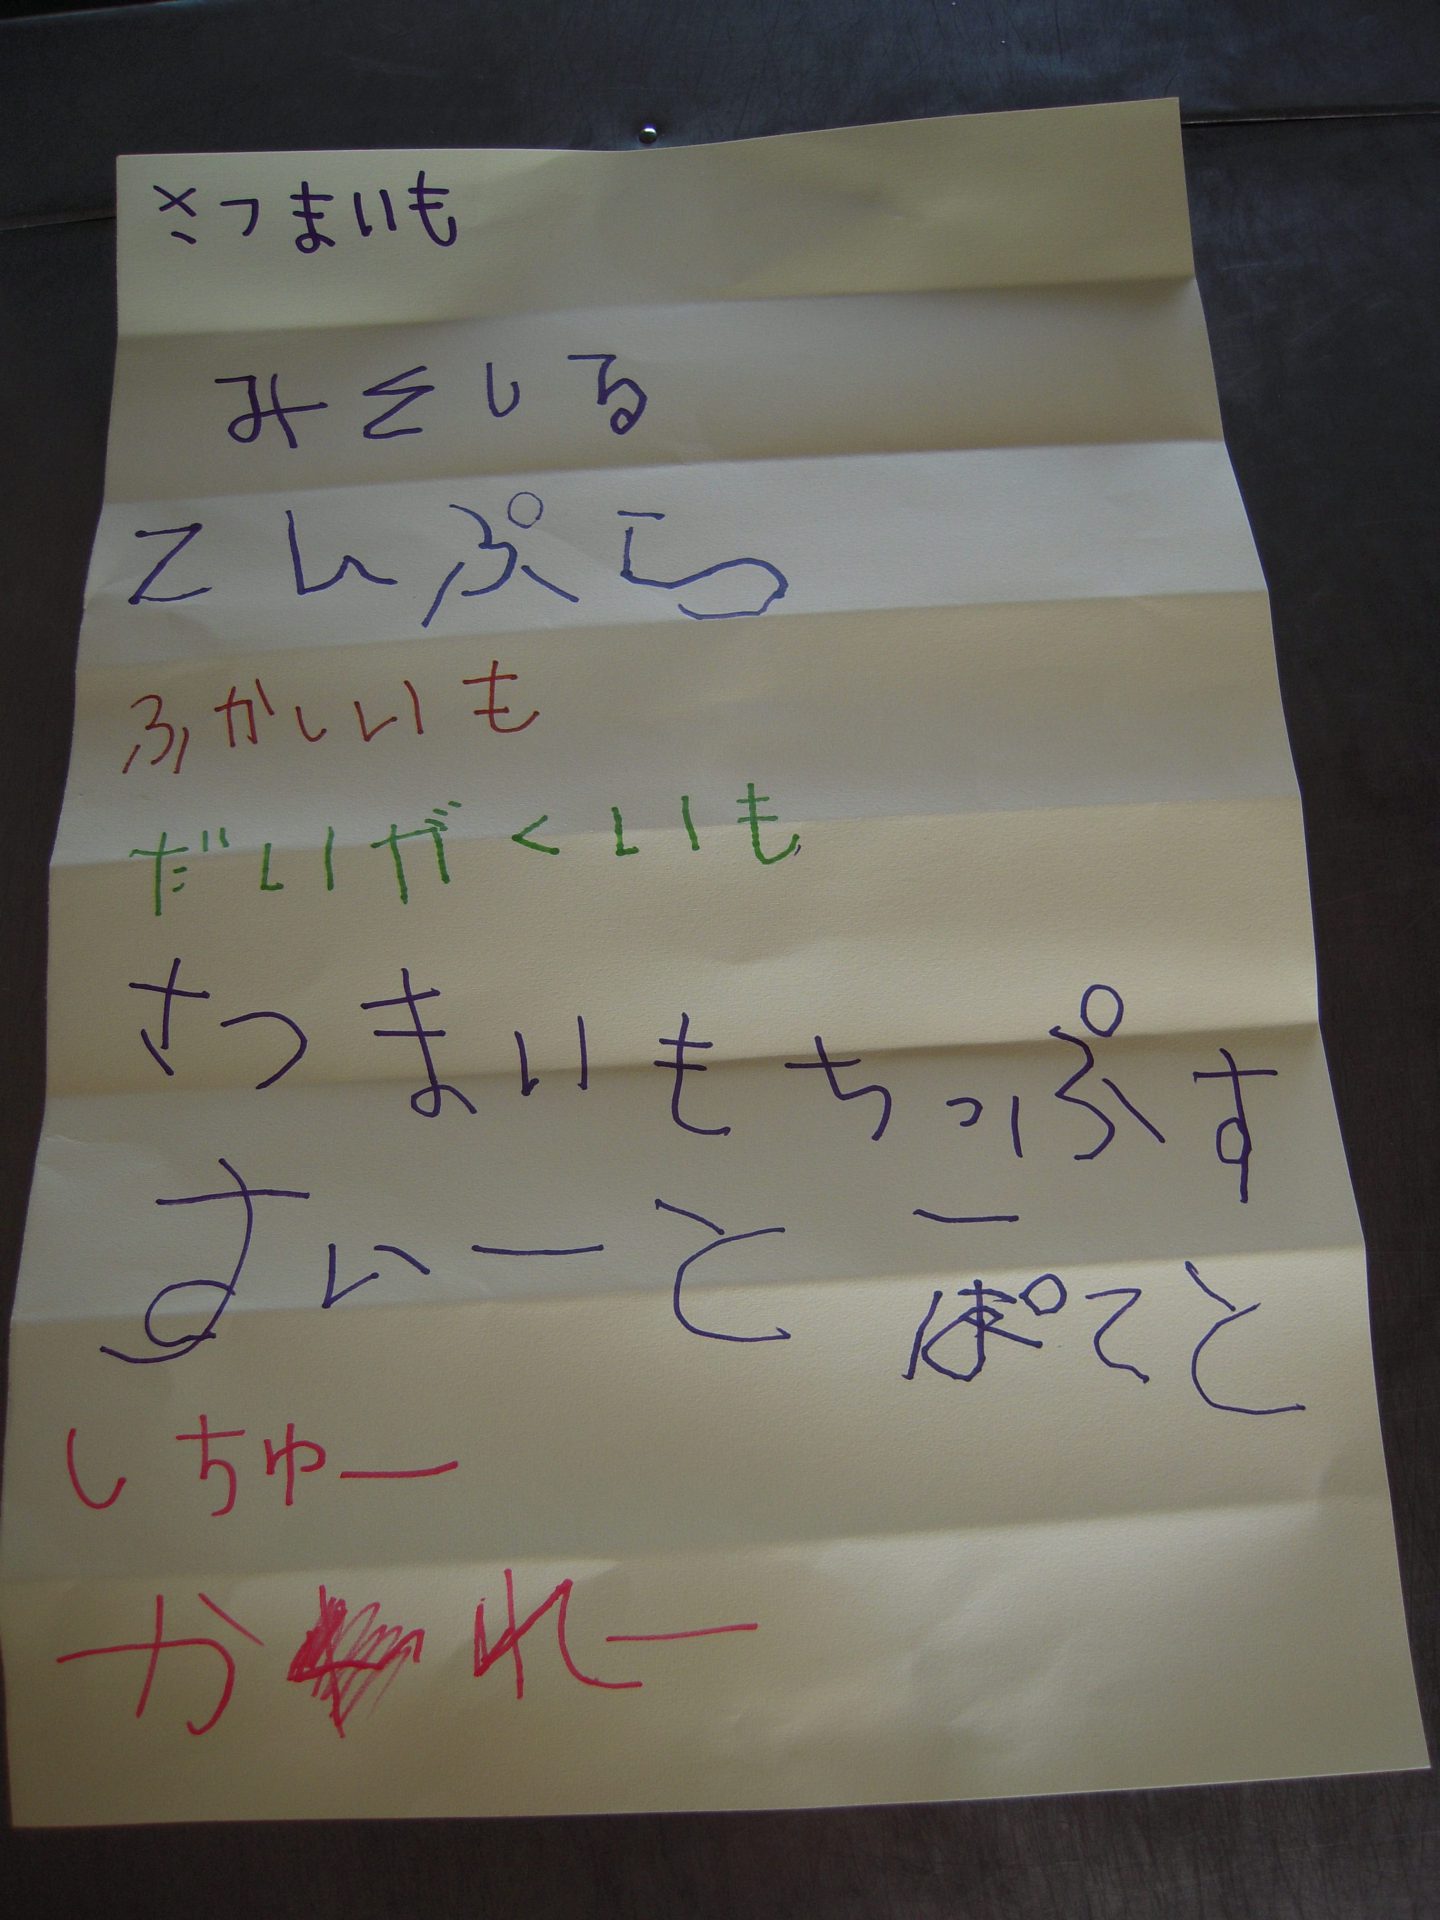 さつまいも
みそしる
てんぷら
ふかしいも
だいがくいも
さつまいもちっぷす
すいーとーぽてと
しちゅー
かれー